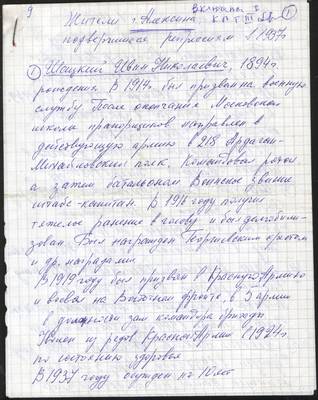 9
Жители г. Алексина
подвергшиеся репрессиям в 1937г
1
① Шацкий Иван Николаевич, 1894г.
рождения. В 1914г. был призван на военную
службу. После окончания Московской
школы прапорщиков направлен в
действующую армию в 218 Ардаган-
Михайловский полк. Командовал ротой
а затем батальоном Воинское звание
штабс-капитан. В 1916 году получил
тяжелое ранение в голову и был демобили-
зован. Был награжден Георгиевским крестом
и др. наградами.
В 1919 году был призван в Красную Армию
и воевал на Восточном фронте, в 5 армии
в должности зам командира бригады
Уволен из рядов Красной Армии в 1924г.
по состоянию здоровья
В 1937 году осужден на 10 лет